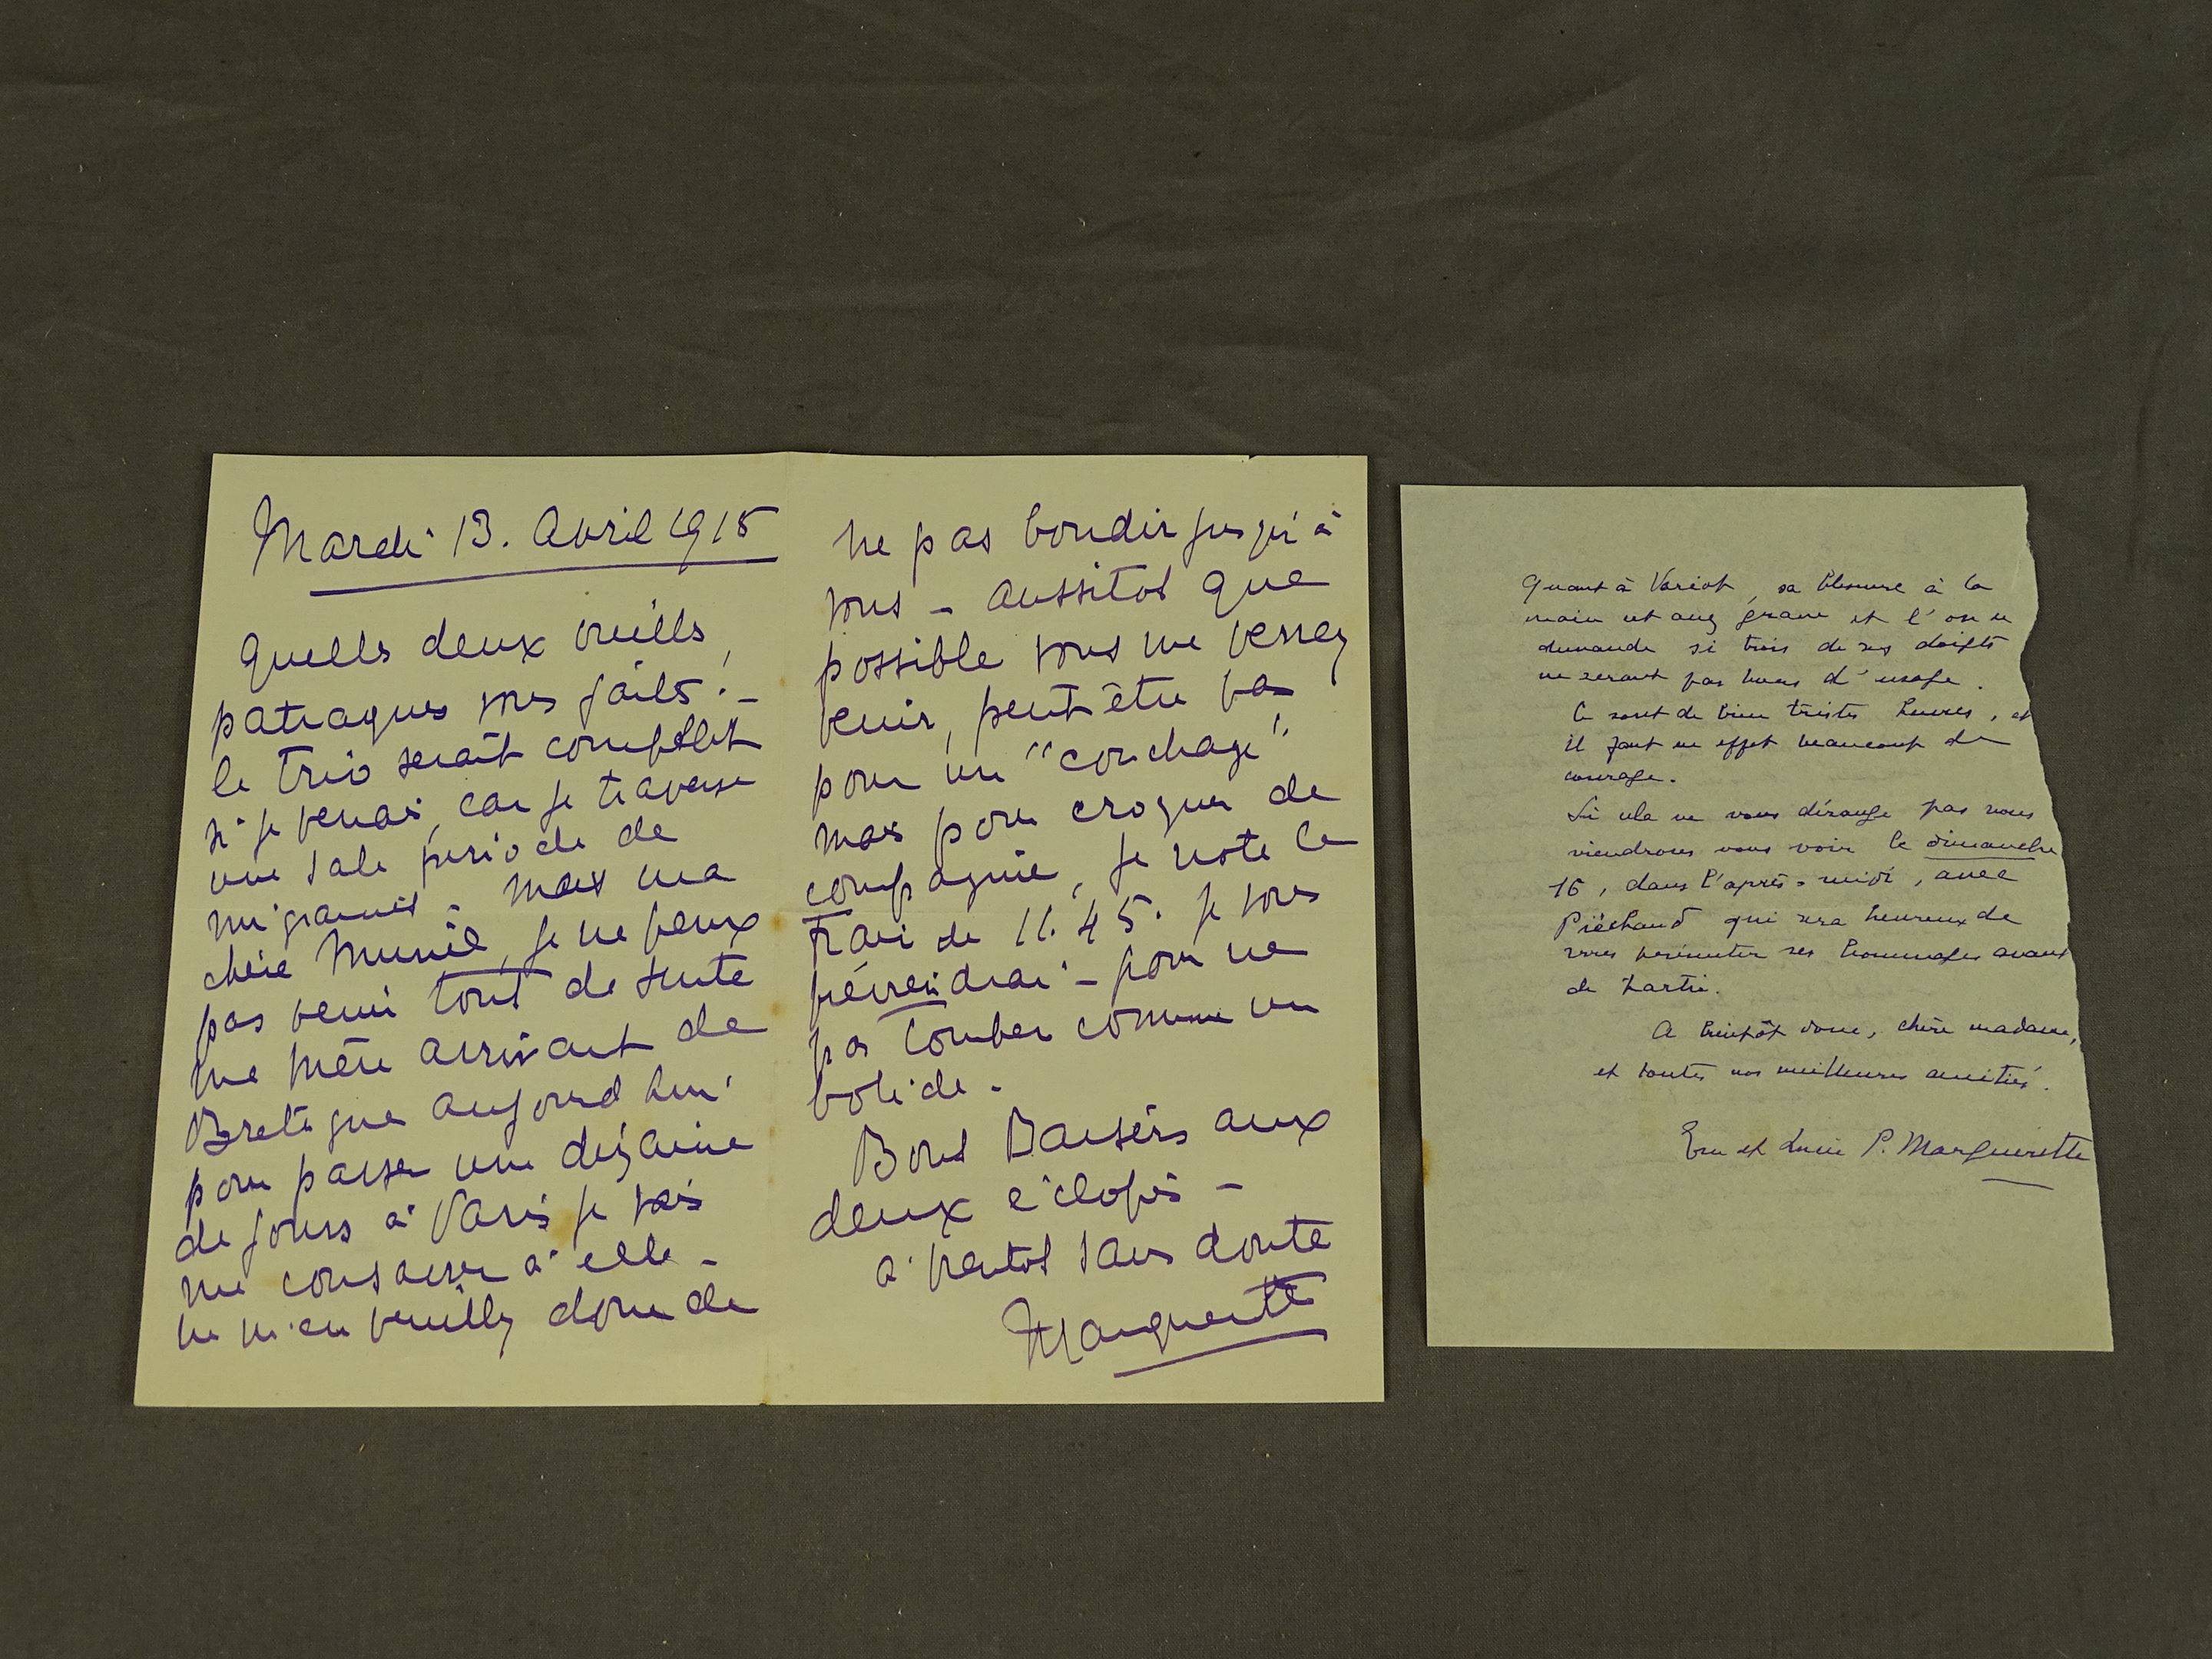 Mardi 13. Avril 1915
Quelles deux vieilles
patraques vous faites. –
le trio serait complet
si je venais, car je traverse
une sale période de
migraines – mais ma
chère Mumie, je ne peux
pas venir tout de suite
ma mère arrivant de
Bretagne aujourd'hui
pour passer une dizaine
de jours à Paris je vais
me consacrer à elle –
ne m'en veuillez donc de
ne pas bondir jusqu'à
vous – aussitot que
possible vous me verrez
venir, peut être pas
pour un "couchage"
mais pour croquer de
compagnie, je note le
train de 11.45. je vous
préviendrai – pour ne
pas tomber comme un
bolide –
Bons Baisers aux
deux éclopés –
à bientot sans doute
Marguerite
Quant à Variot, sa blessure à la
main est assez grave et l'on se
demande si trois de ses doigts
ne seront pas hors d'usage.
Ce sont de bien tristes heures, et
il faut en effet beaucoup de
courage.
Si cela ne vous dérange pas nous
viendrons vous voir le dimanche
16, dans l'après-midi, avec
Piéchaud qui sera heureux de
vous présenter ses hommages avant
de partir.
A bientôt donc, chère madame,
et toutes nos meilleures amitiés.
Eve et Lucie P. Margueritte